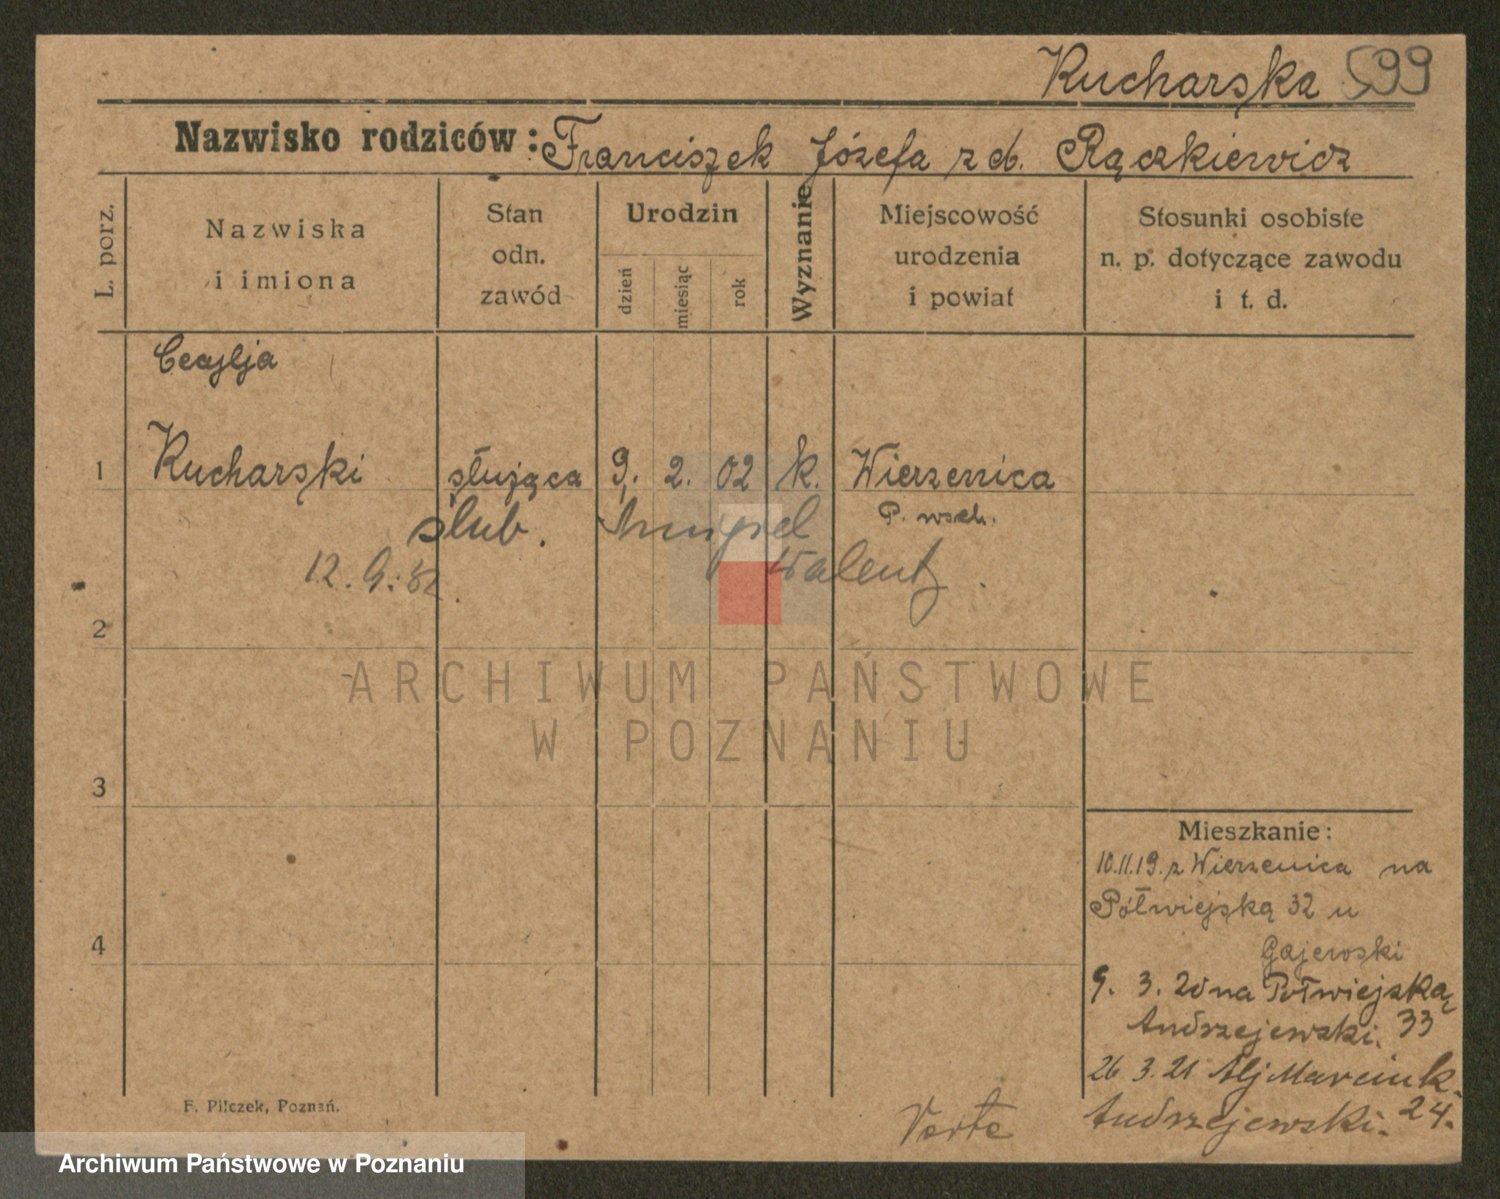 Kucharska 599
Nazwisko rodziców: Franciszek Józefa z d. Rączkiewicz
L. porz.
Nazwiska
i imiona
Stan
odn.
zawód
Urodzin
dzień
miesiąc
rok
Wyznanie
Miejscowość
urodzenia
i powiat
Stosunki osobiste
n. p. dotyczące zawodu
i t. d.
Cecylja
1 Kucharski służąca 9. 2. 02 k. Wierzenica
P. wsch.
ślub.
12. 9.
Walenty
2
3
4
Mieszkanie:
10.11.19. z Wierzenica na
Półwiejską 32 u
Gajewski
9. 3. 20 na Półwiejską
Andrzejewski. 33
26 3. 21 Alj Marcink.
Andrzejewski. 24.
Verte
F. Pilczek, Poznań.
ARCHIWUM PAŃSTWOWE
W POZNANIU
Archiwum Państwowe w Poznaniu